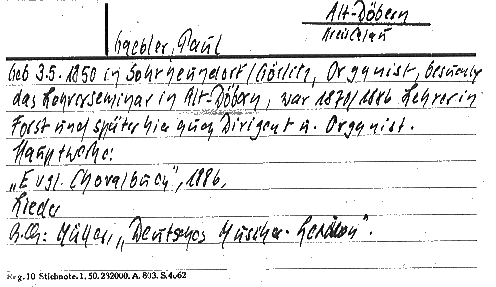 Alt-Döbern
Kreis Calau
Gaebler, Paul
Geb 3.5.1850 in Sohrneundorf/Görlitz, Organist, besuchte
das Lehrerseminar in Alt-Döbern, war 1870/1886 Lehrer in
Forst und später hier auch Dirigent u. Organist.
Hauptwerke:
„Evgl. Choralbuch", 1886,
Lieder
Müller, „Deutsches Musiker-Lexikon".
Reg. 10 Stichnote. 1, 50. 232000. A. 803. S. 4062